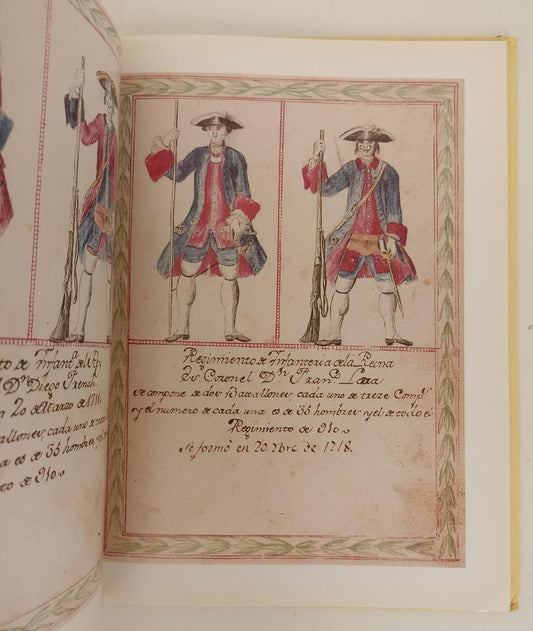 to de Ynfantª de
Dⁿ Diego French
n 20 de Marzo de 1711
allones, cada uno de treze
a es de 35 hombres y el
to de 910
Regimiento de Ynfanteria de la Reina
Su Coronel Dⁿ Franᶜᵒ Lara
se compone de dos Batallones, cada uno de treze Compˢ
y el numero de cada una es de 35 hombres y el de todo el
Regimiento de 910
Se formò en 20. 7bre de 1718.